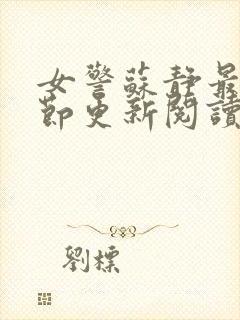 女警蘇靜最
節更新閱讀
劉標